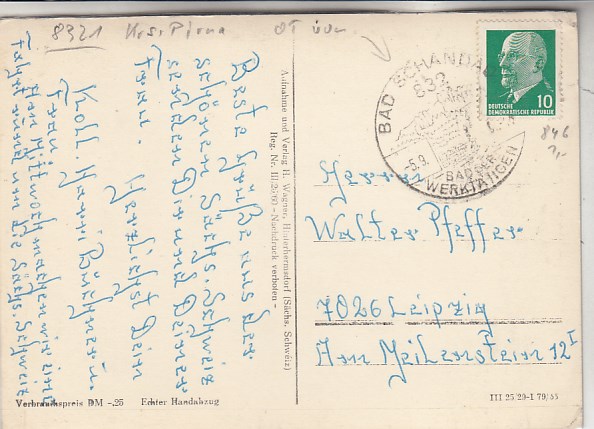 8321 Krs. Pirna OT
Beste Grüße aus der
schönen Sächs. Schweiz
senden Dir und Deiner
Frau. Herzlichst Dein
Koll. Hanni Büchner u.
Frau
Am Mittwoch machen wir eine
Fahrt durch die Sächs. Schweiz
Verbrauchspreis DM -.25 Echter Handabzug
Aufnahme und Verlag H. Wagner, Hinterhermsdorf (Sächs. Schweiz)
Reg. Nr. III/25/93 -Nachdruck verboten-
BAD SCHANDAU
832
-5.9.
BAD DER
WERKTÄTIGEN
DEUTSCHE
DEMOKRATISCHE REPUBLIK
10
846
Herrn
Walter Pfeffer
7026 Leipzig
Am Meilenstein 12 I
III 25 29-I 79/55